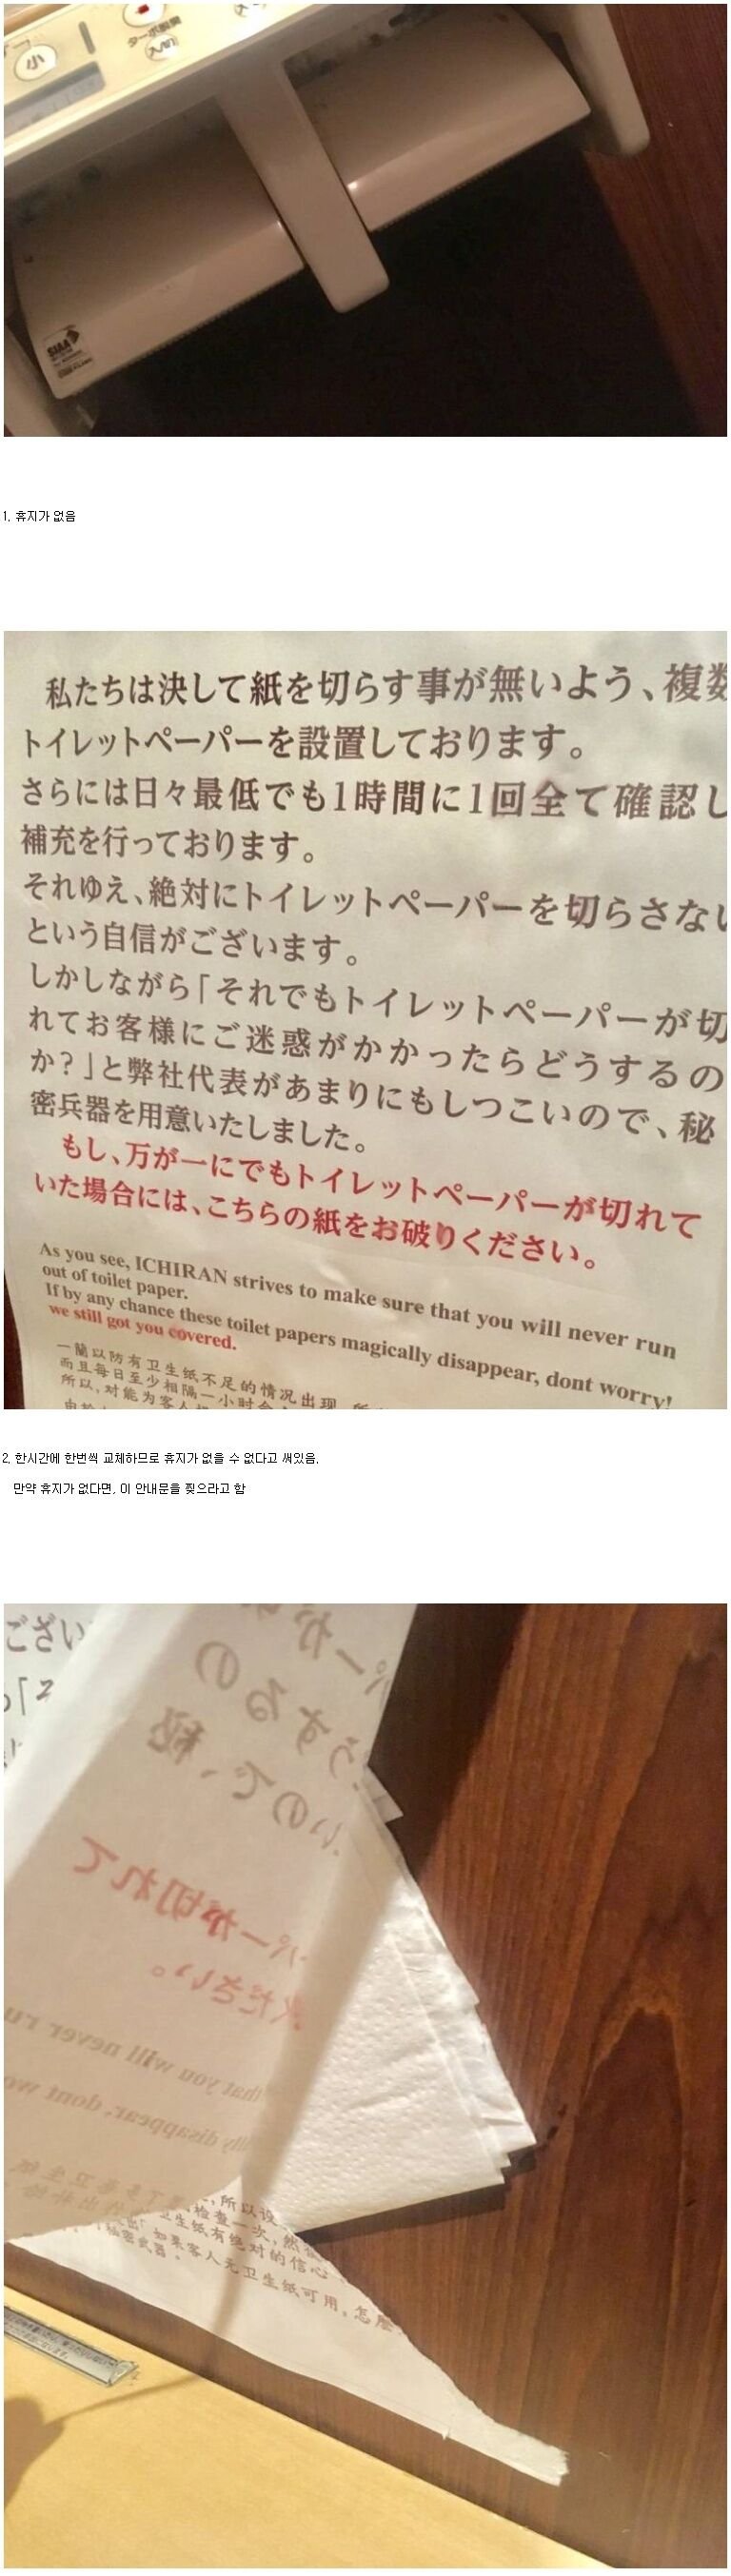 小
ターボ脱臭
入/切
SIAA
1. 휴지가 없음
私たちは決して紙を切らす事が無いよう、複数
トイレットペーパーを設置しております。
さらには日々最低でも1時間に1回全て確認し
補充を行っております。
それゆえ、絶対にトイレットペーパーを切らさない
という自信がございます。
しかしながら「それでもトイレットペーパーが切
れてお客様にご迷惑がかかったらどうするの
か?」と弊社代表があまりにもしつこいので、秘
密兵器を用意いたしました。
もし、万が一にでもトイレットペーパーが切れて
いた場合には、こちらの紙をお破りください。
As you see, ICHIRAN strives to make sure that you will never run
out of toilet paper.
If by any chance these toilet papers magically disappear, dont worry!
we still got you covered.
一蘭以防有卫生纸不足的情况出现,
而且每日至少相隔一小时会
所以,对能为客人
2. 한시간에 한번씩 교체하므로 휴지가 없을 수 없다고 써있음.
만약 휴지가 없다면, 이 안내문을 찢으라고 함
ござい
パーが
うするの
いので、秘
パーが切れて
ください。
that you will never ru
lly disappear, dont wo
,所以设
检查一次,然
卫生纸有绝对的信心
如果客人无卫生纸可用,怎
秘密武器。